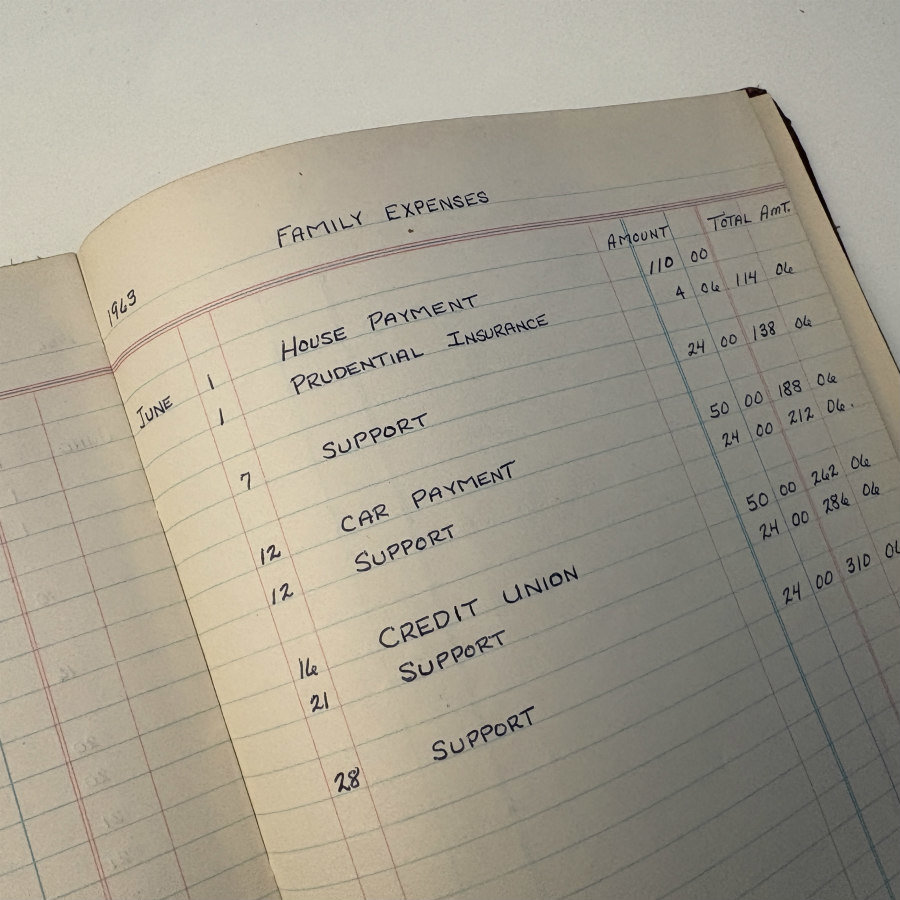 FAMILY EXPENSES
1963 AMOUNT TOTAL AMT.
JUNE 1 HOUSE PAYMENT 110 00
1 PRUDENTIAL INSURANCE 4 06 114 06
7 SUPPORT 24 00 138 06
12 CAR PAYMENT 50 00 188 06
12 SUPPORT 24 00 212 06.
16 CREDIT UNION 50 00 262 06
21 SUPPORT 24 00 286 06
28 SUPPORT 24 00 310 06